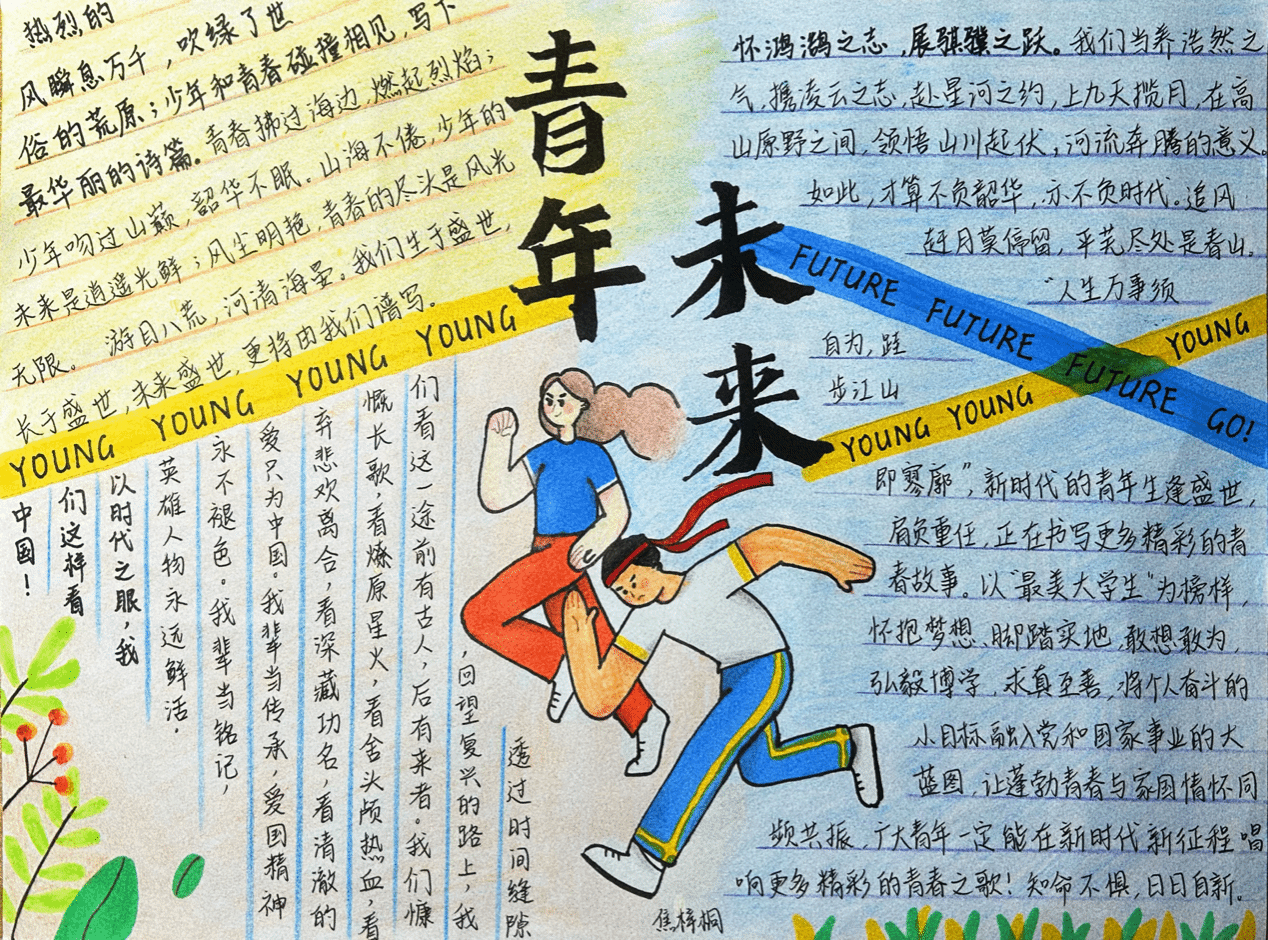 青年
未来
热烈的
风瞬息万千，吹绿了世
俗的荒原；少年和青春碰撞相见，写下
最华丽的诗篇。青春拂过海边，燃起烈焰；
少年吻过山巅，韶华不眠。山海不倦，少年的
未来是逍遥光鲜；风尘明艳，青春的尽头是风光
无限。游目八荒，河清海晏。我们生于盛世，
长于盛世，未来盛世，更将由我们谱写。
YOUNG YOUNG YOUNG YOUNG
透过时间缝隙
，回望复兴的路上，我
们看这一途前有古人，后有来者。我们慷
慨长歌，看燎原星火，看舍头颅热血，看
弃悲欢离合，看深藏功名，看清澈的
爱只为中国。我辈当传承，爱国精神
永不褪色。我辈当铭记，
英雄人物永远鲜活.
以时代之眼，我
们这样看
中国！
怀鸿鹄之志，展骐骥之跃。我们当养浩然之
气，携凌云之志，赴星河之约，上九天揽月，在高
山原野之间，领悟山川起伏，河流奔腾的意义。
如此，才算不负韶华，亦不负时代。追风
赶月莫停留，平芜尽处是春山。
“人生万事须
自为，跬
步江山
FUTURE FUTURE FUTURE GO!
YOUNG YOUNG YOUNG
即寥廓”，新时代的青年生逢盛世，
肩负重任，正在书写更多精彩的青
春故事。以“最美大学生”为榜样，
怀抱梦想、脚踏实地，敢想敢为，
弘毅博学，求真至善，将个人奋斗的
小目标融入党和国家事业的大
蓝图，让蓬勃青春与家国情怀同
频共振，广大青年一定能在新时代新征程唱
响更多精彩的青春之歌！知命不惧，日日自新。
焦梓桐